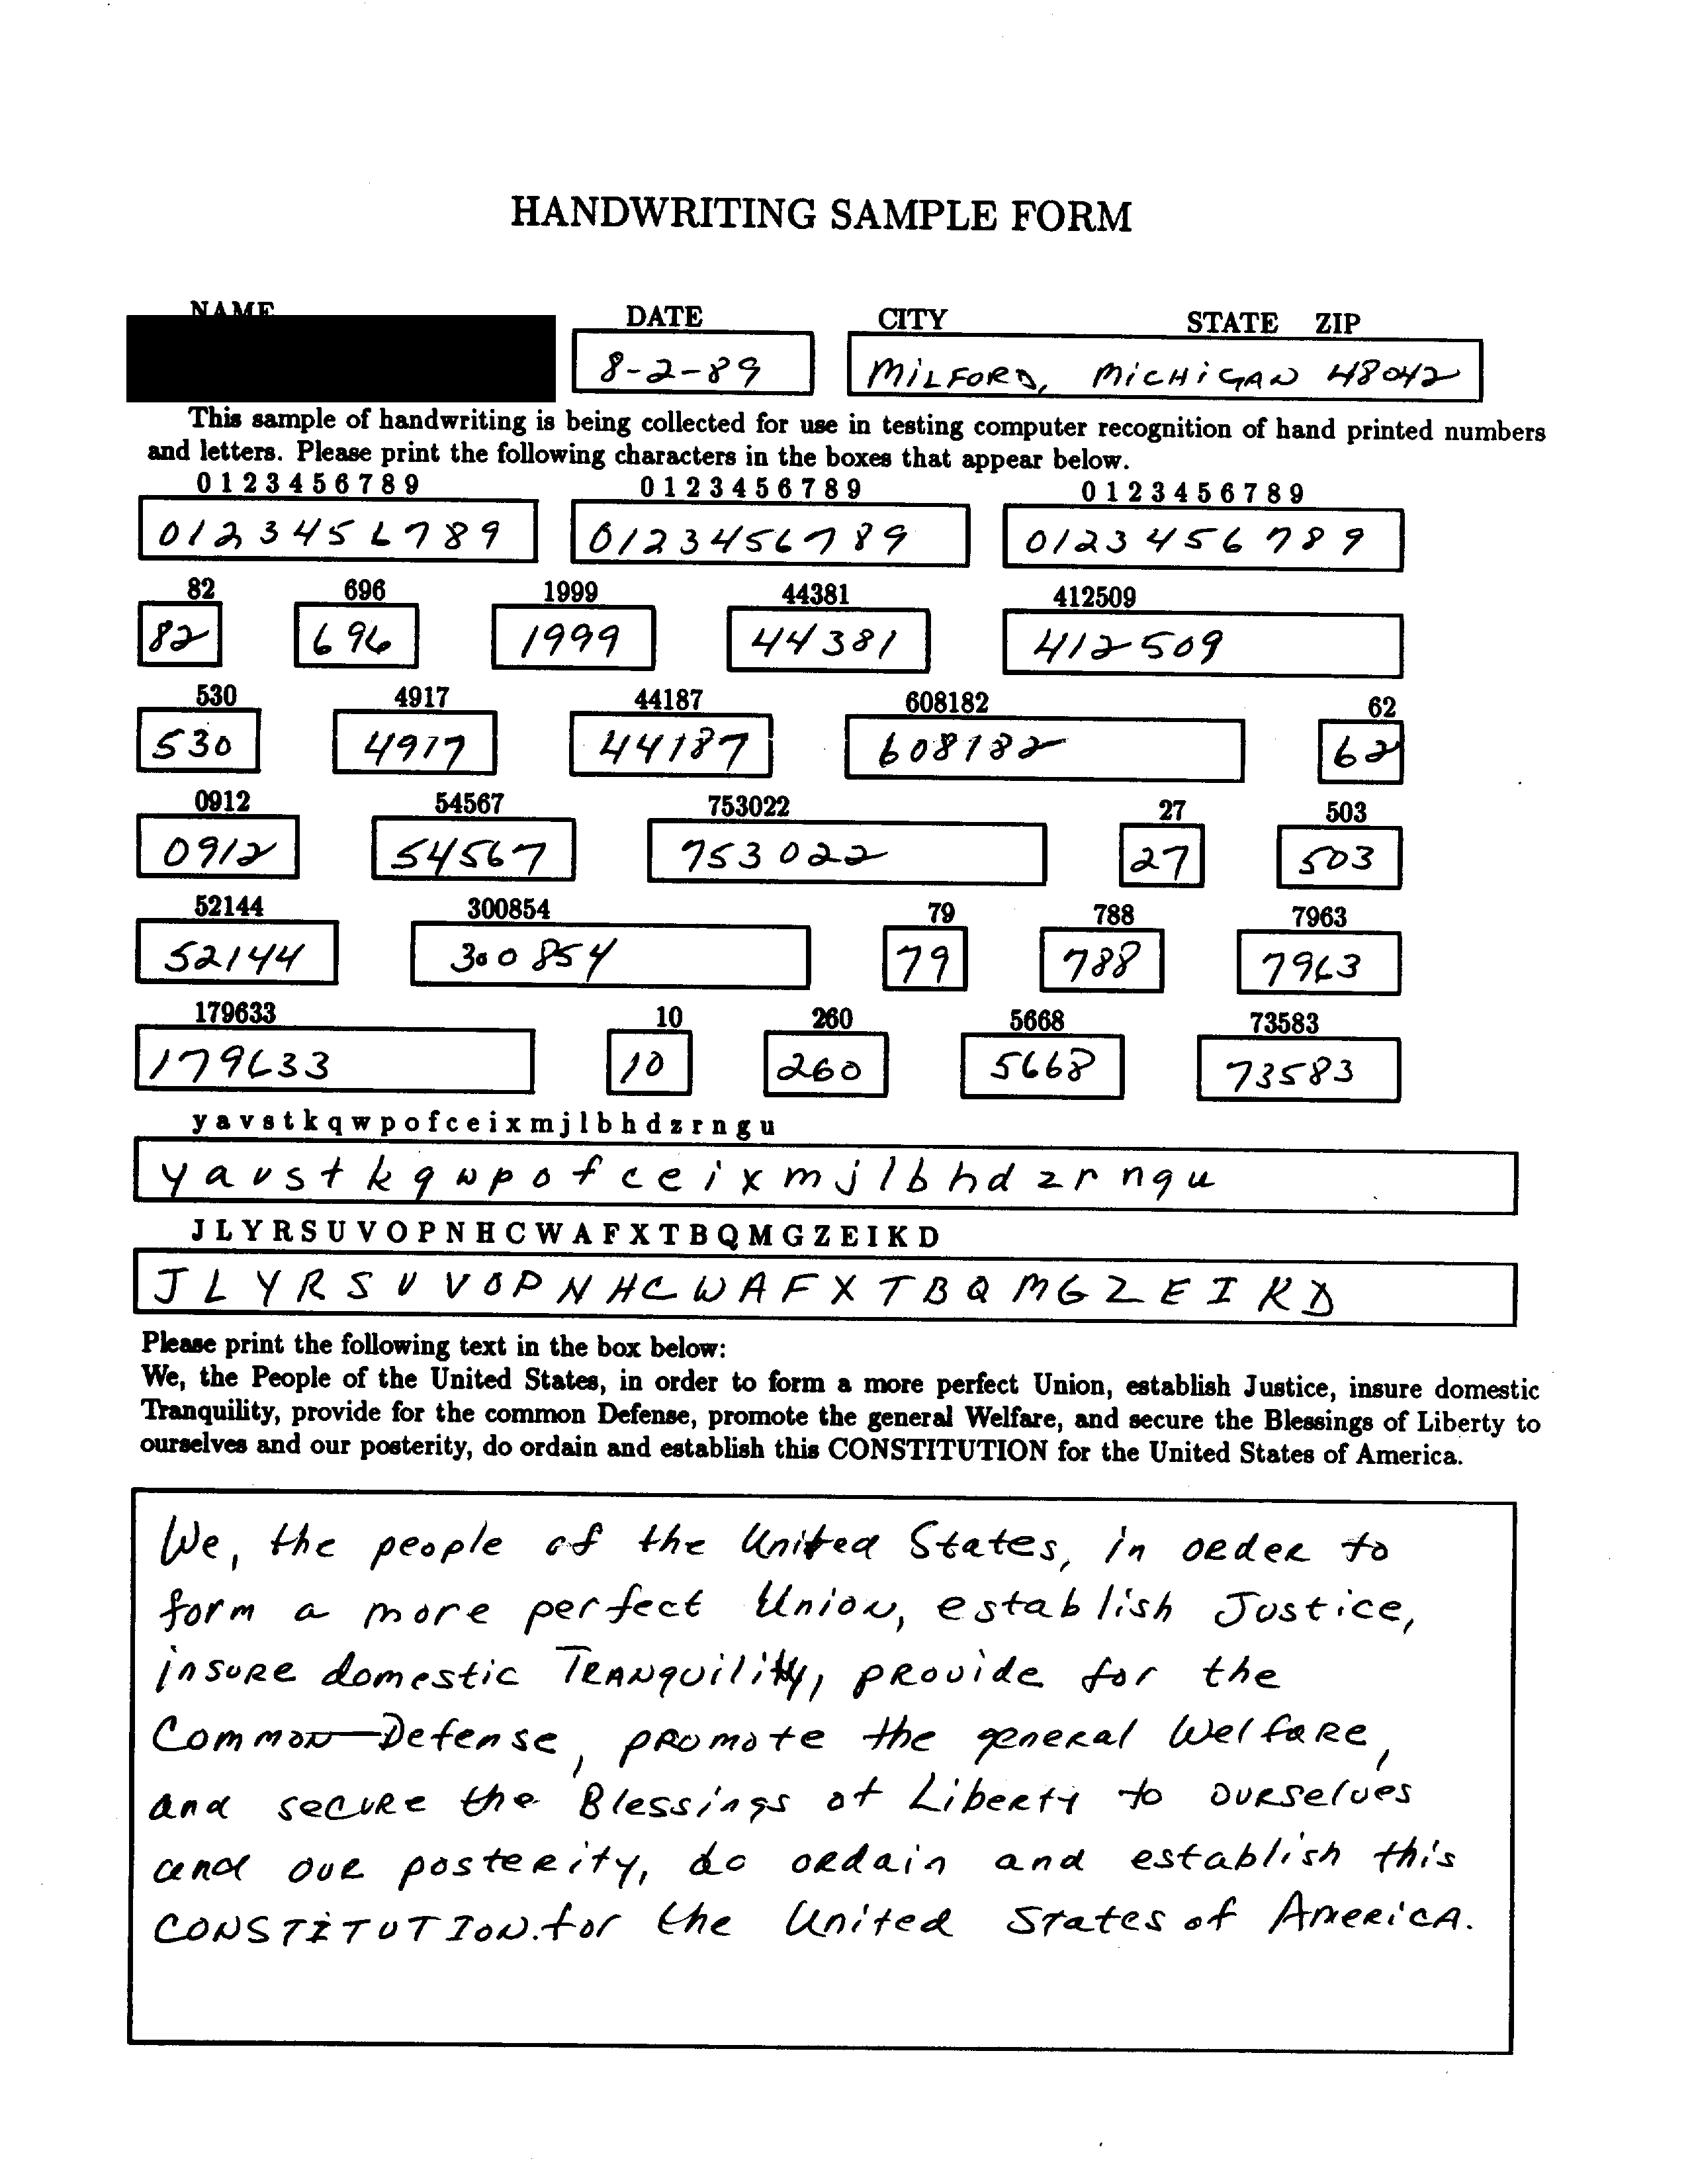 HANDWRITING SAMPLE FORM
NAME DATE CITY STATE ZIP
8-2-89 MiLFORD, MiCHiGAN 48042
This sample of handwriting is being collected for use in testing computer recognition of hand printed numbers
and letters. Please print the following characters in the boxes that appear below.
0 1 2 3 4 5 6 7 8 9 0 1 2 3 4 5 6 7 8 9 0 1 2 3 4 5 6 7 8 9
0123456789 0123456789 0123456789
82 696 1999 44381 412509
82 696 1999 44381 412509
530 4917 44187 608182 62
530 4917 44187 608182 62
0912 54567 753022 27 503
0912 54567 753022 27 503
52144 300854 79 788 7963
52144 300854 79 788 7963
179633 10 260 5668 73583
179633 10 260 5668 73583
y a v s t k q w p o f c e i x m j l b h d z r n g u
y a v s t k q w p o f c e i x m j l b h d z r n g u
J L Y R S U V O P N H C W A F X T B Q M G Z E I K D
J L Y R S U V O P N H C W A F X T B Q M G Z E I K D
Please print the following text in the box below:
We, the People of the United States, in order to form a more perfect Union, establish Justice, insure domestic
Tranquility, provide for the common Defense, promote the general Welfare, and secure the Blessings of Liberty to
ourselves and our posterity, do ordain and establish this CONSTITUTION for the United States of America.
We, the people of the United States, in oRdeR to
form a more perfect Union, establish Justice,
insuRe domestic TRANquility, pRovide for the
Common Defense, pRomote the geneRal WelfaRe,
and secuRe the Blessings of LibeRty to ouRselves
and ouR posteRity, do oRdain and establish this
CONSTITUTION. for the United States of AmeRicA.